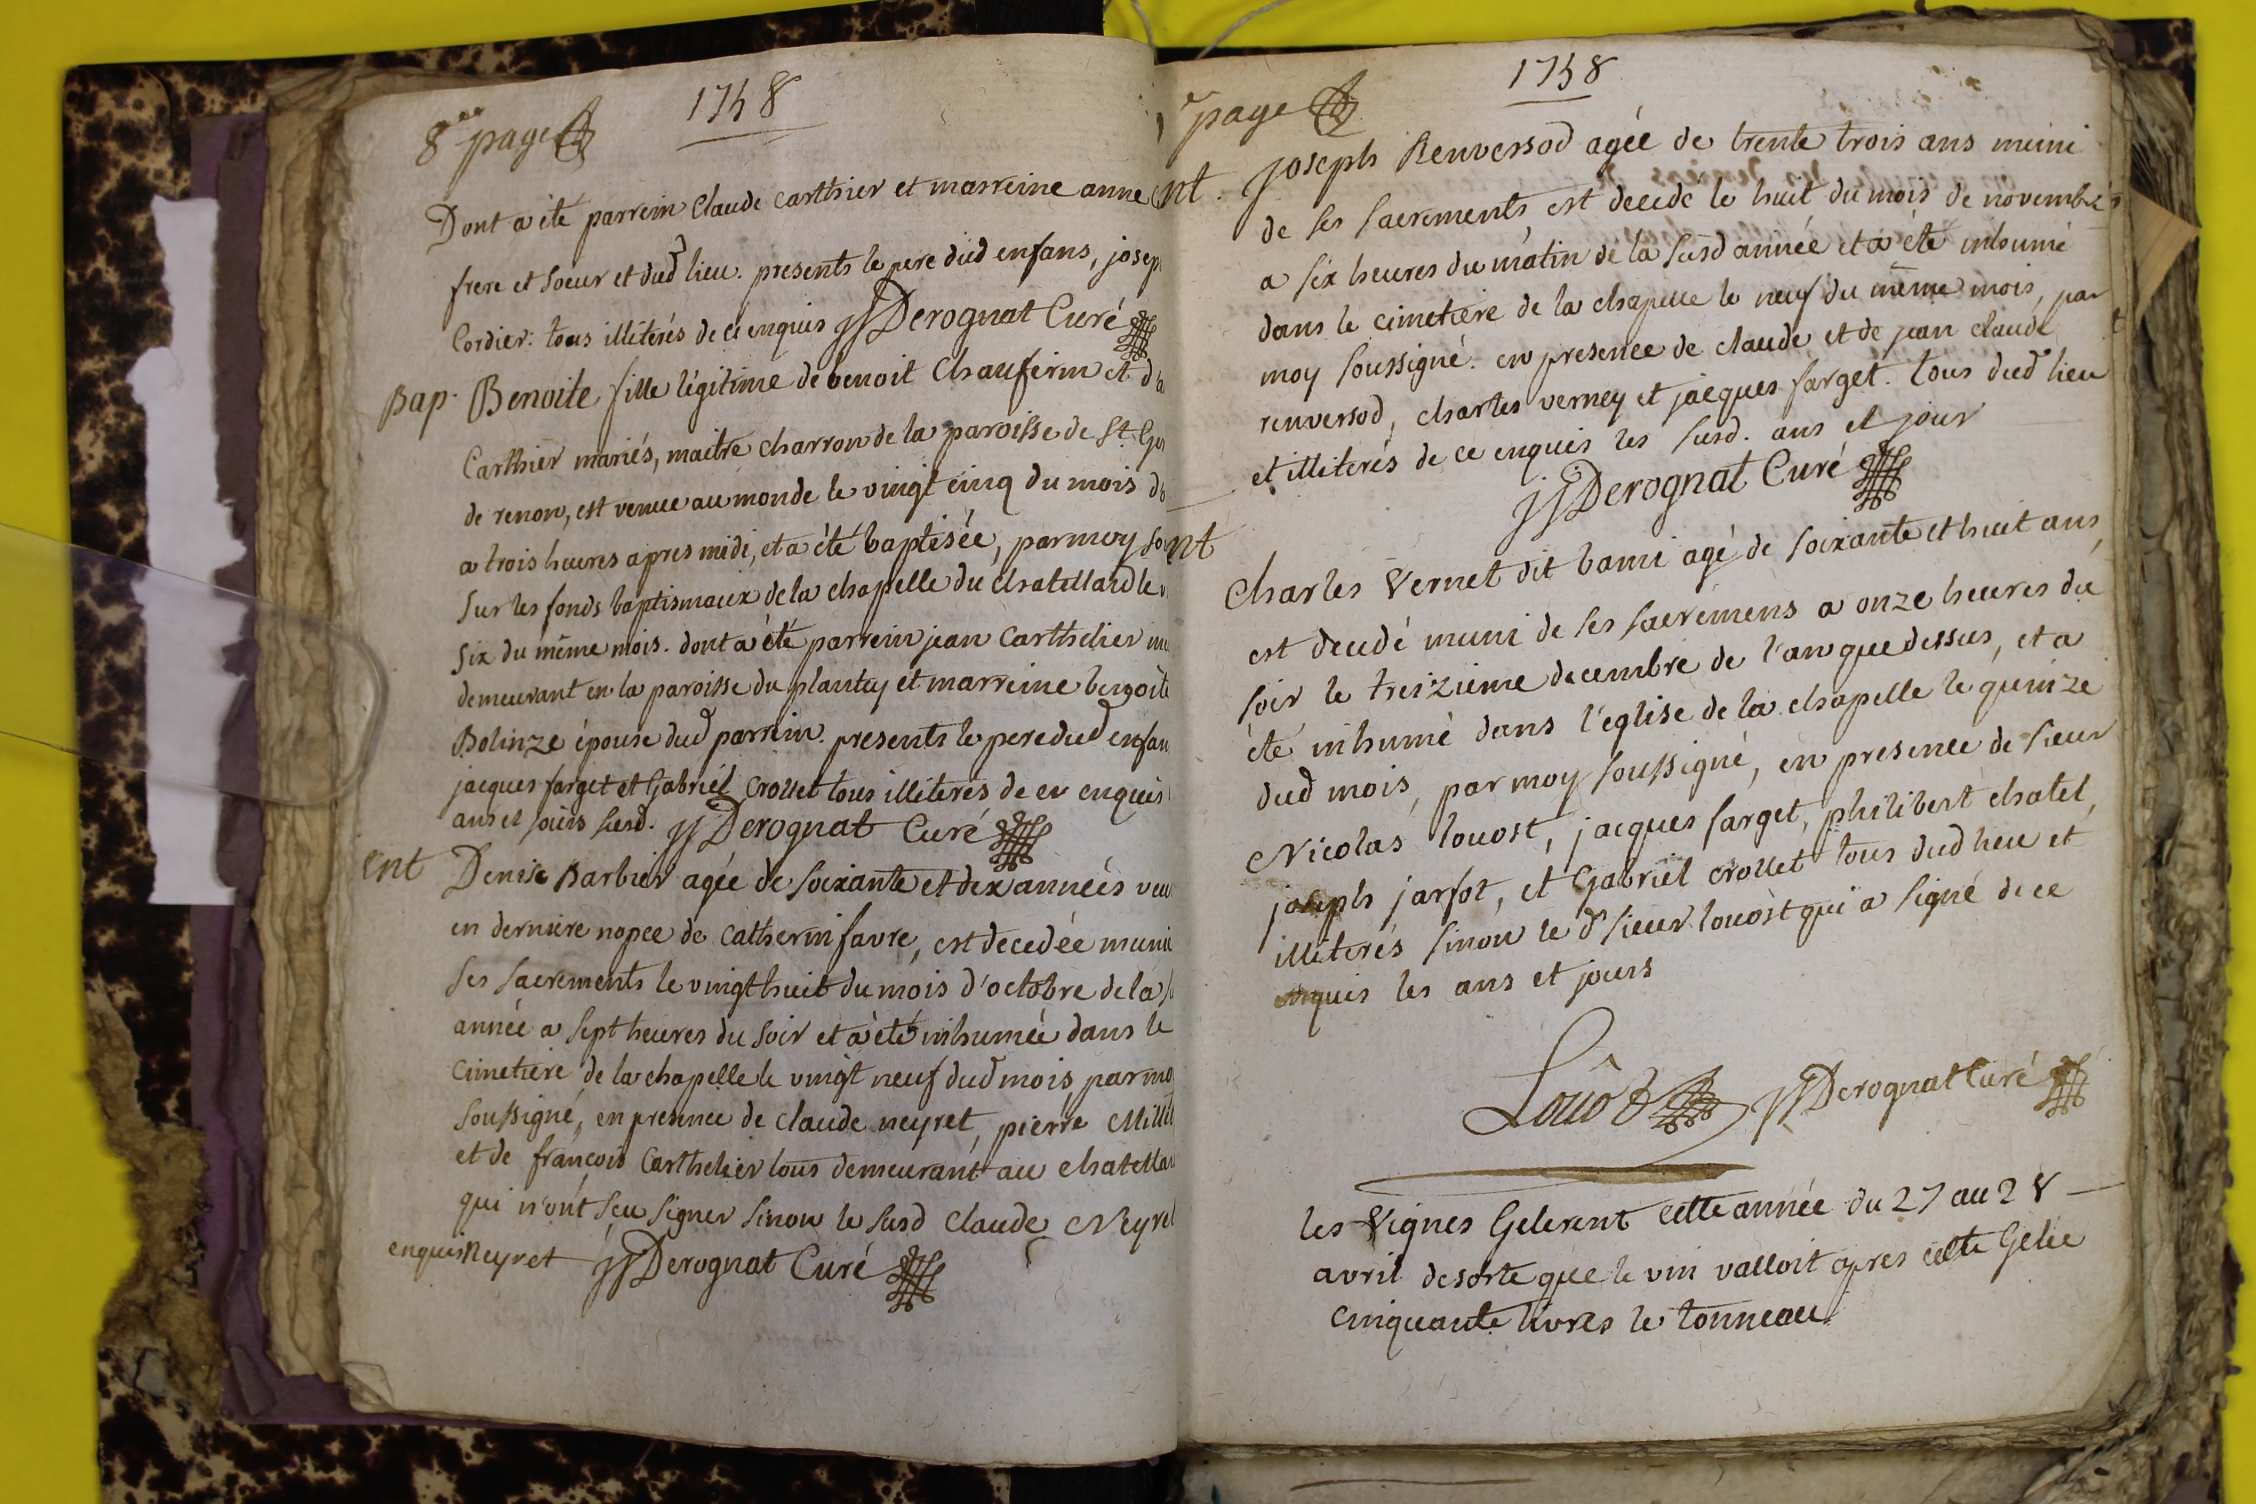 8me page
1758
Dont a été parrein Claude Carthier et marreine anne
frere et soeur et dud lieu. presents le pere dud enfans, josep
Cordier: tous illiterés de ce enquis JJ Derognat Curé
Bap. Benoite fille légitime de benoit Chauferin et d
Carthier mariés, maitre charron de la paroisse de St. Ger
de renon, est venue au monde le vingt cinq du mois d
a trois heures apres midi, et a été baptisée, par moy sou
sur les fonds baptismaux de la chapelle du chatellard le
six du même mois. dont a été parrein jean Carthelier
demeurant en la paroisse du plantay et marreine benoite
Bolinze épouse dud parrein. presents le pere dud enfan
jacques farget et Gabriel Crollet tous illiterés de ce enquis
ans et jours susd. JJ Derognat Curé
ent Denise Barbier agée de soixante et dix années veu
en derniere nopce de Catherin favre, est decedée munie
ses sacrements le vingt huit du mois d'octobre de la s
année a sept heures du soir et a été inhumée dans le
Cimetiere de la chapelle le vingt neuf dud mois, par mo
soussigné, en presence de Claude neyret, pierre Mill
et de françois Carthelier tous demeurant au chatellar
qui n'ont sçu signer sinon le susd Claude Neyret
enquis Neyret JJ Derognat Curé
page
1758
nt. Joseph Renversod agée de trente trois ans muni
de ses sacrements, est decedé le huit du mois de novembre
a six heures du matin de la susd année et a été inhumé
dans le cimetiere de la chapelle le neuf du même mois, par
moy soussigné. en presence de claude et de jean claude
renversod, charles verney et jacques farget. tous dud lieu
et illiterés de ce enquis les susd. ans et jour
JJ Derognat Curé
nt
Charles Vernet dit bami agé de soixante et huit ans,
est decedé muni de ses sacremens a onze heures du
soir le treizieme decembre de l'an que dessus, et a
été inhumé dans l'eglise de la chapelle le quinze
dud mois, par moy soussigné, en presence de sieur
Nicolas louost, jacques farget, philibert chatel,
joseph jarfot, et Gabriel crollet tous dud lieu et
illiterés sinon le d sieur louost qui a signé de ce
enquis les ans et jours
Loüost JJ Derognat Curé
les Vignes Gelerent cette année du 27 au 28
avril desorte que le vin valloit apres cette Gelée
cinquante livres le tonneau